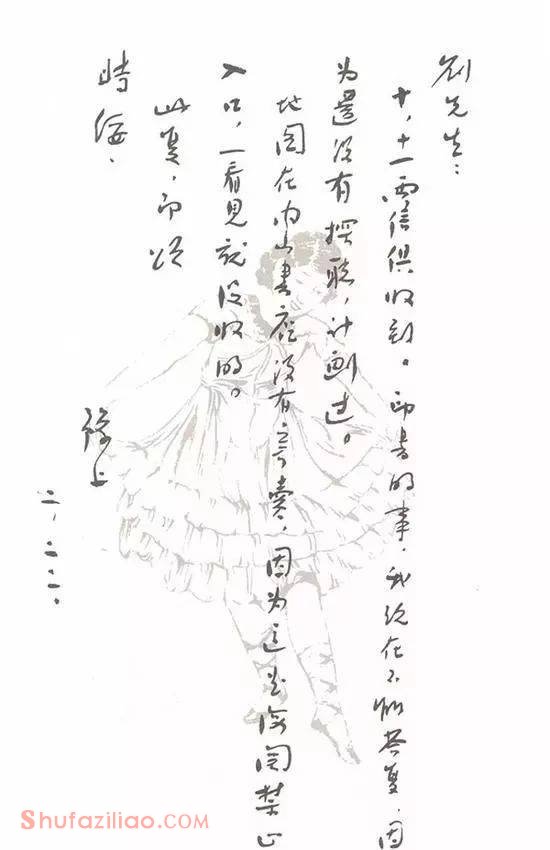 刘先生：
十，十一兩信俱收到。印書的事，我现在不能答复，因
为還没有探聽，计劃过。
地图在内山書店没有寄賣，因为这是海関禁止
入口，一看見就没收的。
此复，即颂
時绥。
豫上
二，二二。
Shufaziliao.com